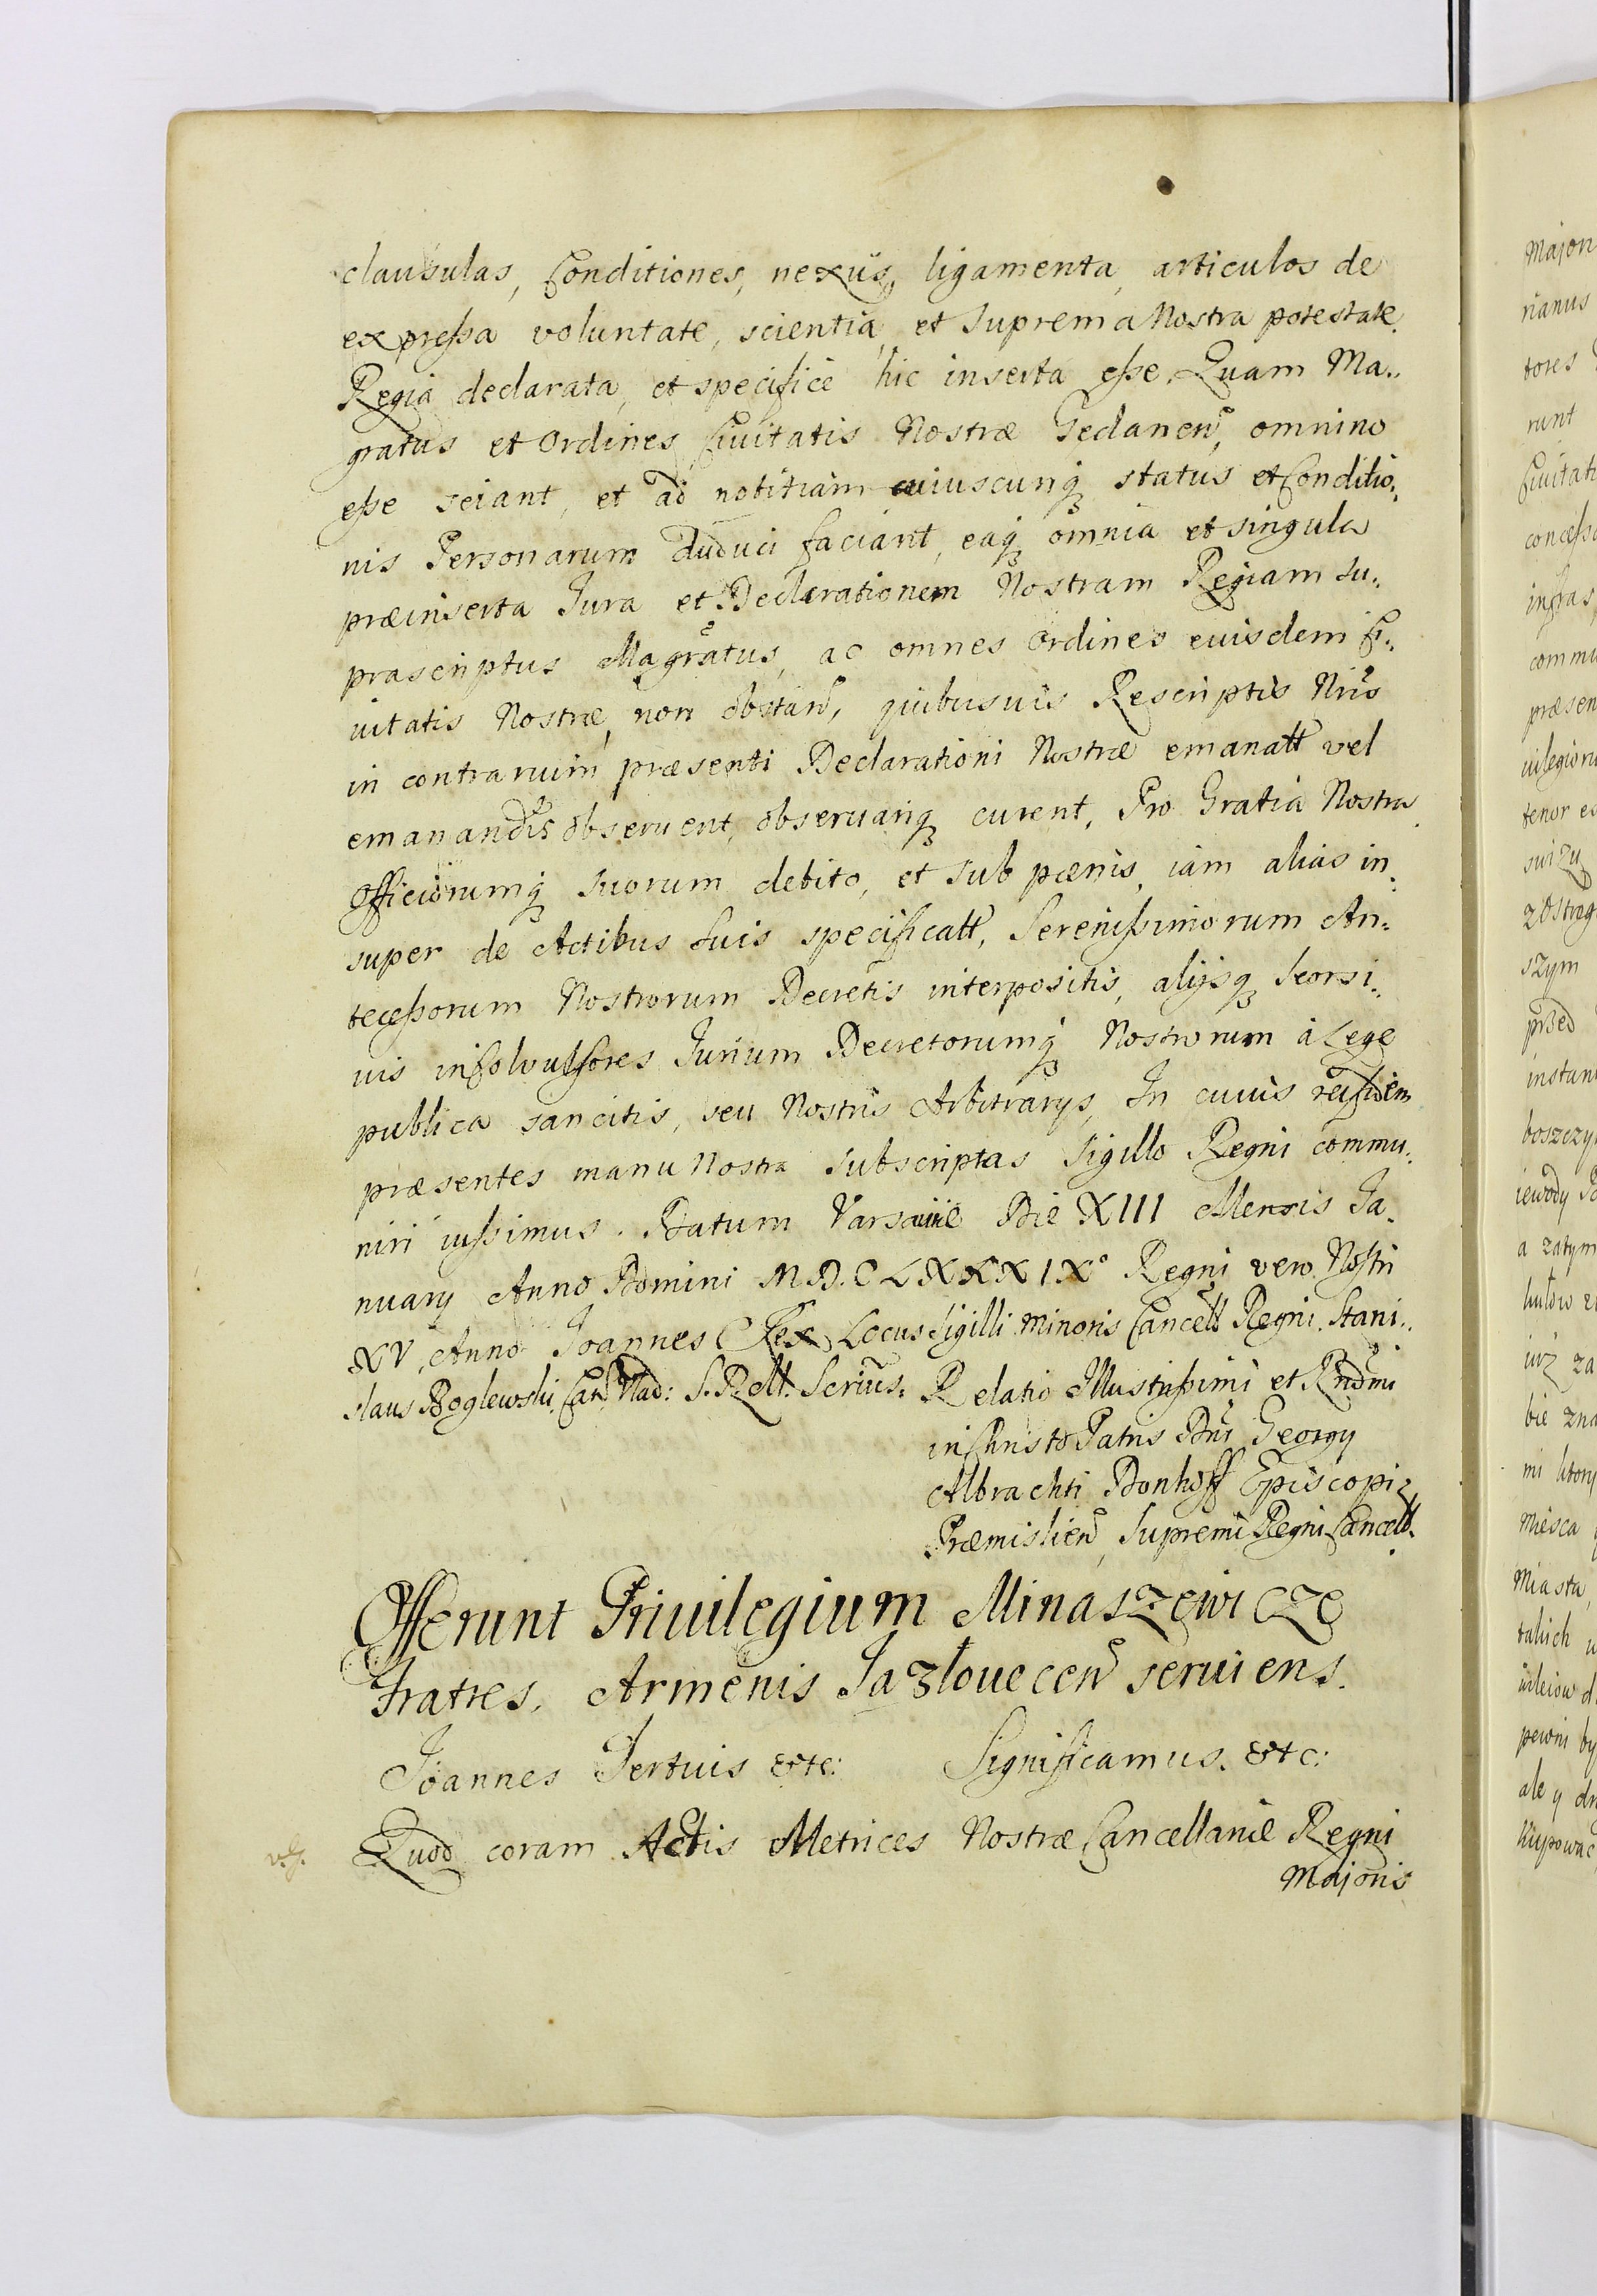 clausulas, Conditiones, nexus, ligamenta, articulos de
expressa voluntate, scientia, et Suprema Nostra potestate
Regia declarata, et specifice hic inserta esse. Quam Ma„
gratus et Ordines Civitatis Nostræ Gedanen̄, omnino
esse sciant, et ad notitiam cuiuscunq; status et Conditio„
nis Personarum duduci faciant, eaq; omnia et singula
præinserta Jura et Declarationem Nostram Regiam su„
prascriptus Magratus, ac omnes Ordines euisdem Ci„
uitatis Nostræ, non obstan̄, quibusuis Rescriptis Nr̄is
in contrarium præsenti Declarationi Nostræ emanatt̄ vel
emanandis obseruent, obseruariq; curent, Pro Gratia Nostra
Officiorumq; suorum debito, et sub pænis, iam alias in„
super de Actibus suis specificatt̄, Serenissimorum An„
tecessorum Nostrorum Decretis interpositis, alijsq; seorsi„
uis in Jurium Decretorumq; Nostrorum à Lege
publica sancitis, seu Nostris Arbitrarys, In cuius rei fidem
præsentes manu Nostra subscriptas Sigillo Regni commu„
niri iussimus. Datum Varsauiæ Die XIII Mensis Ja„
nuary Anno Domini M.D.C.LXXXIX° Regni vero Nostri
XV. Anno Joannes Rex Locus Sigilli minoris Cancell Regni. Stani„
slaus Boglewski, Can: Vlad: S.R.M. Scrius. Relatio Illustrissimi et Rndmi
in Christo Patris Dn̄i Georgy
Albrachti Donhoff Episcopi
Præmislien̄, Supremi Regni Cancell.
Offerunt Priuilegium Minaszewicze
Fratres, Armenis Jazłouecen̄ seruiens.
Joannes Tertuis etc: Significamus. etc:
Quod coram Actis Metrices Nostræ Cancellariæ Regni
Majoris